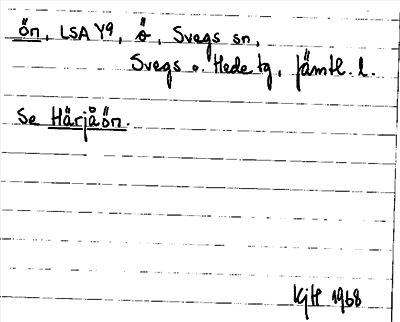 Ön, LSA Y9, ö, Svegs sn,
Svegs o. Hede tg, Jämtl. l.
Se Härjåön.
KjH 1968